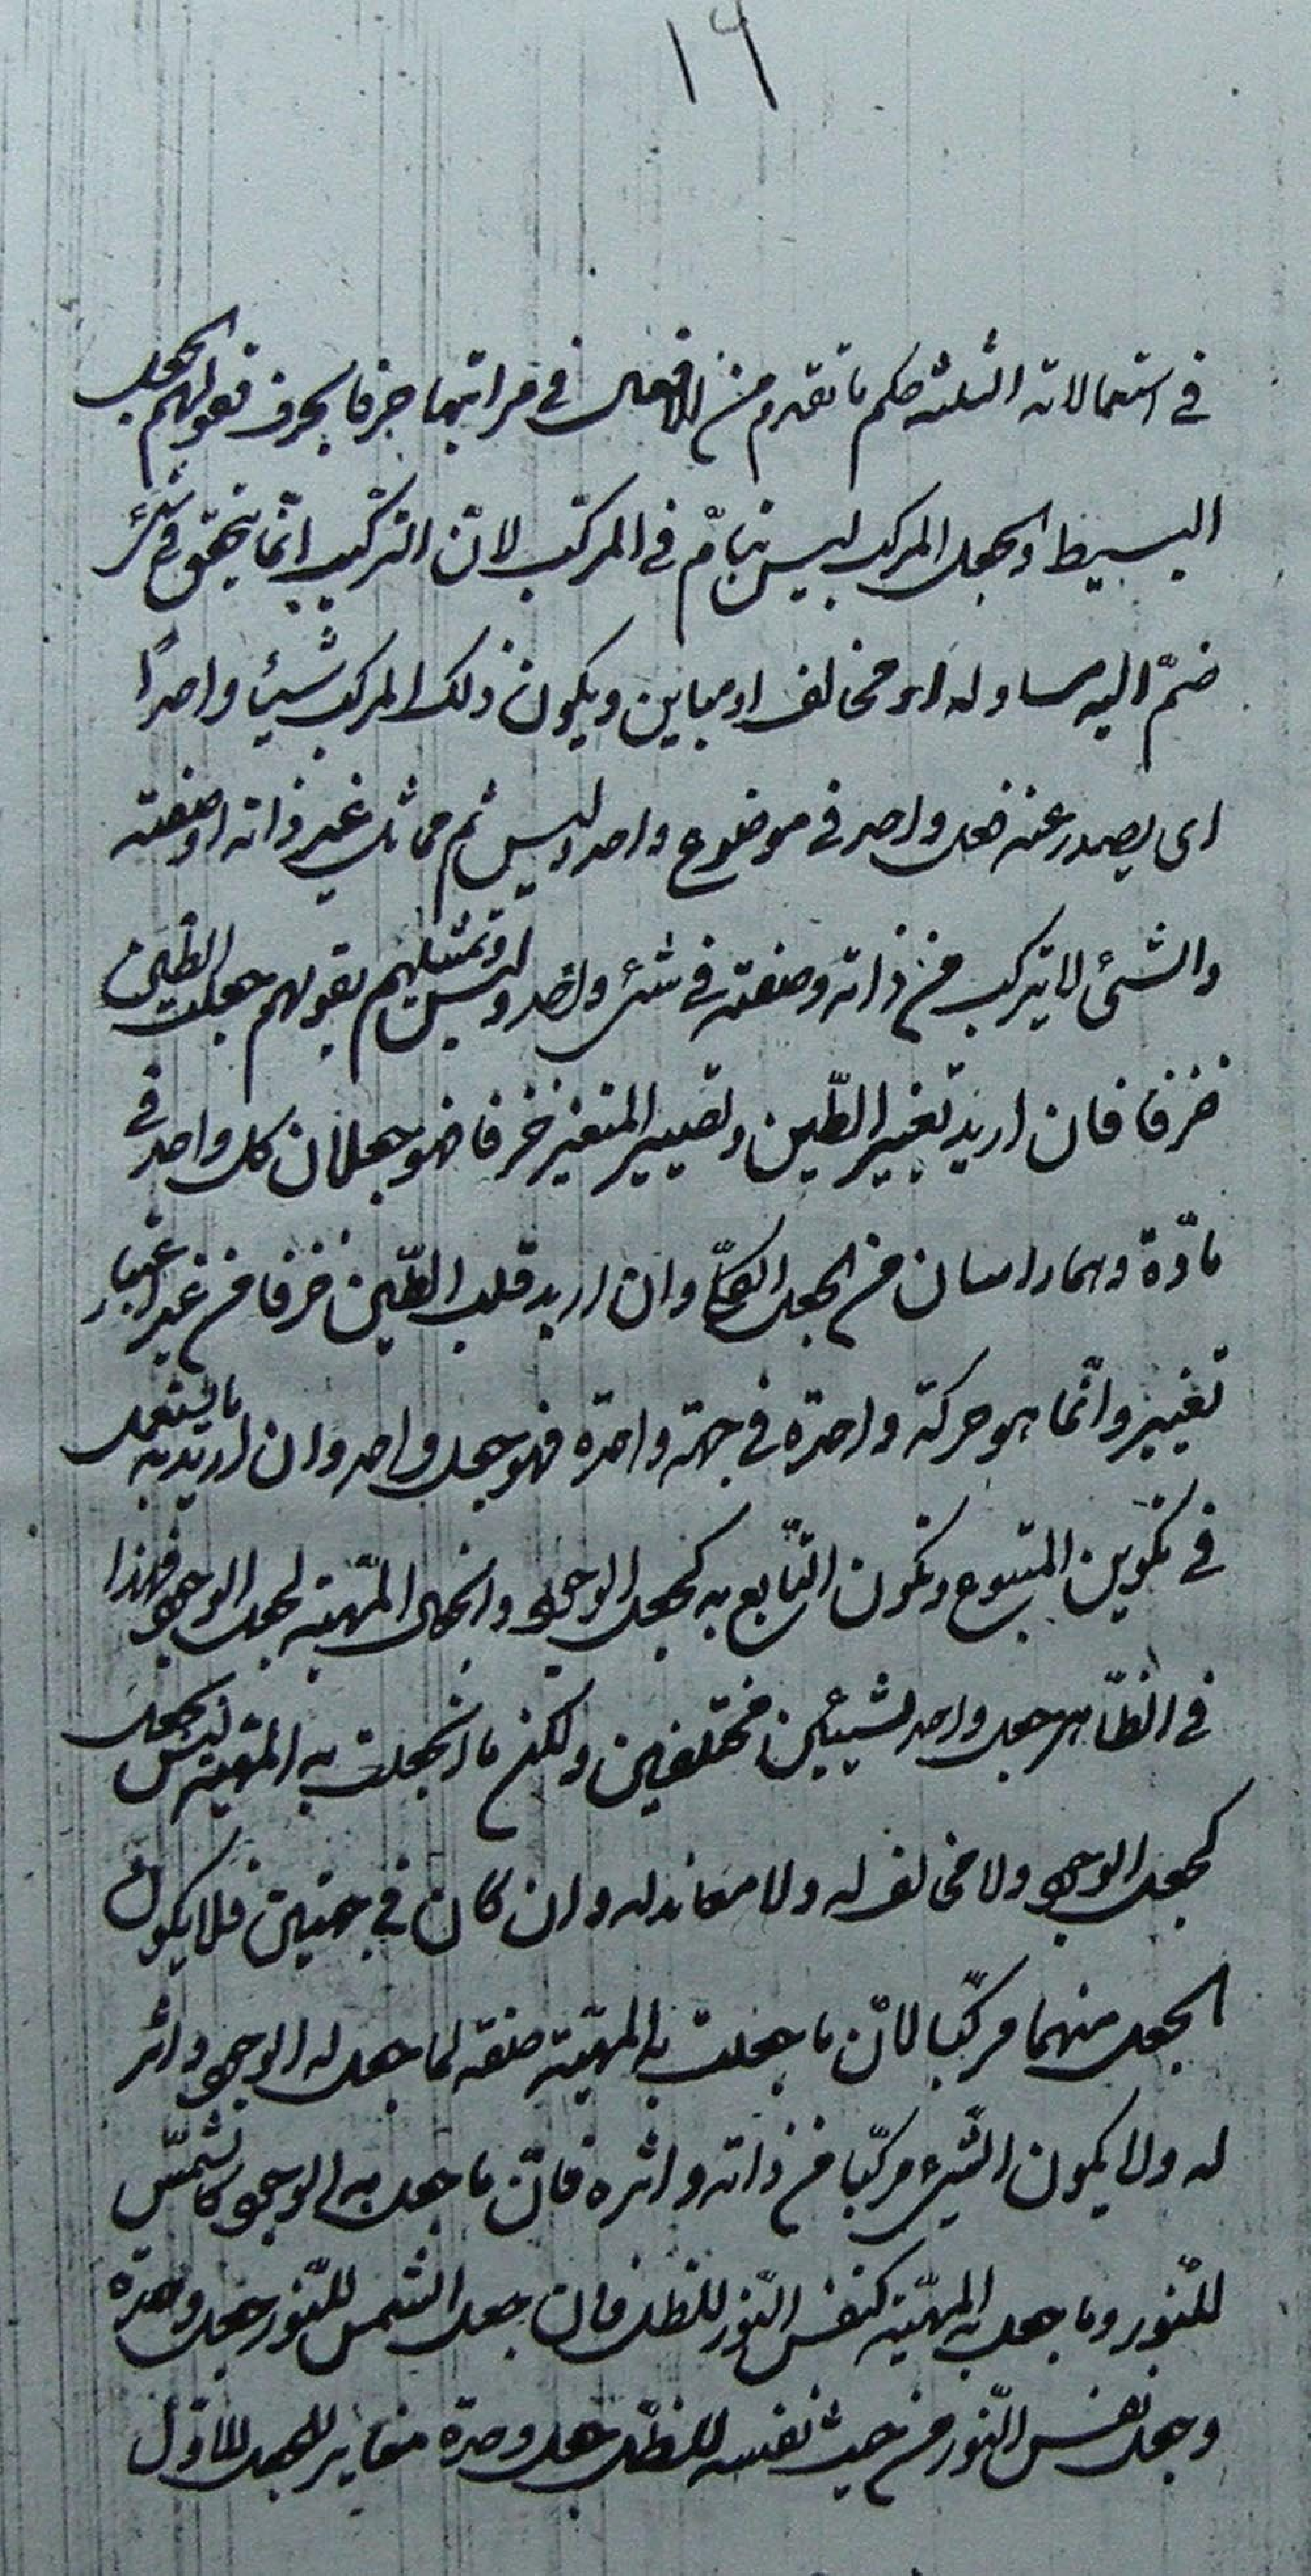 ١٦
في استعمالاته الثلثه حكم ما تقدم من الافعال في مراتبها حرفا بحرف فقولهم الجعل
البسيط والجعل المركب ليس بتامّ في المركّب لانّ التركيب انّما يتحقق في شئ
ضمّ اليه مساو له او مخالف او مباين ويكون ذلك المركب شيئا واحدًا
اى يصدر عنه فعل واحد في موضوع واحد وليس ثم مماثل غير ذاته او صفته
والشئ لا يتركب من ذاته وصفته في شئ واحد وليس وتمثيلهم بقولهم جعلت الطّين
خزفا فان اريد تغيير الطّين وتصيير المتغير خزفا فهو جعلان كل واحد في
مادّة وهما راسان من الجعل الكلّى وان اريد قلب الطّين خزفا من غير اعتبار
تغيير وانّما هو حركة واحدة في جهة واحدة فهو جعل واحد وان اريد به ما يستعمل
في تكوين المتبوع وتكون التّابع به كجعل الوجود وانجعال المهيّة بجعل الوجود فهذا
في الظّاهر جعل واحد لشيئين مختلفين ولكن ما انجعلت به المهيّة ليس بجعل
كجعل الوجود ولا مخالف له ولا معاند له وان كان في جهتين فلا يكون
الجعل منهما مركّبا لانّ ما جعلت به المهيّة صفة لما جعل له الوجود واثر
له ولا يكون الشّئ مركّبا من ذاته واثره فانّ ما جعل به الوجود كالشّمس
للنّور وما جعل به المهيّة كنفس النّور للظل فان جعل الشمس للنّور جعل وحدة
وجعل نفس النّور من حيث نفسه للظلّ جعل وحدة مغاير للجعل الاوّل